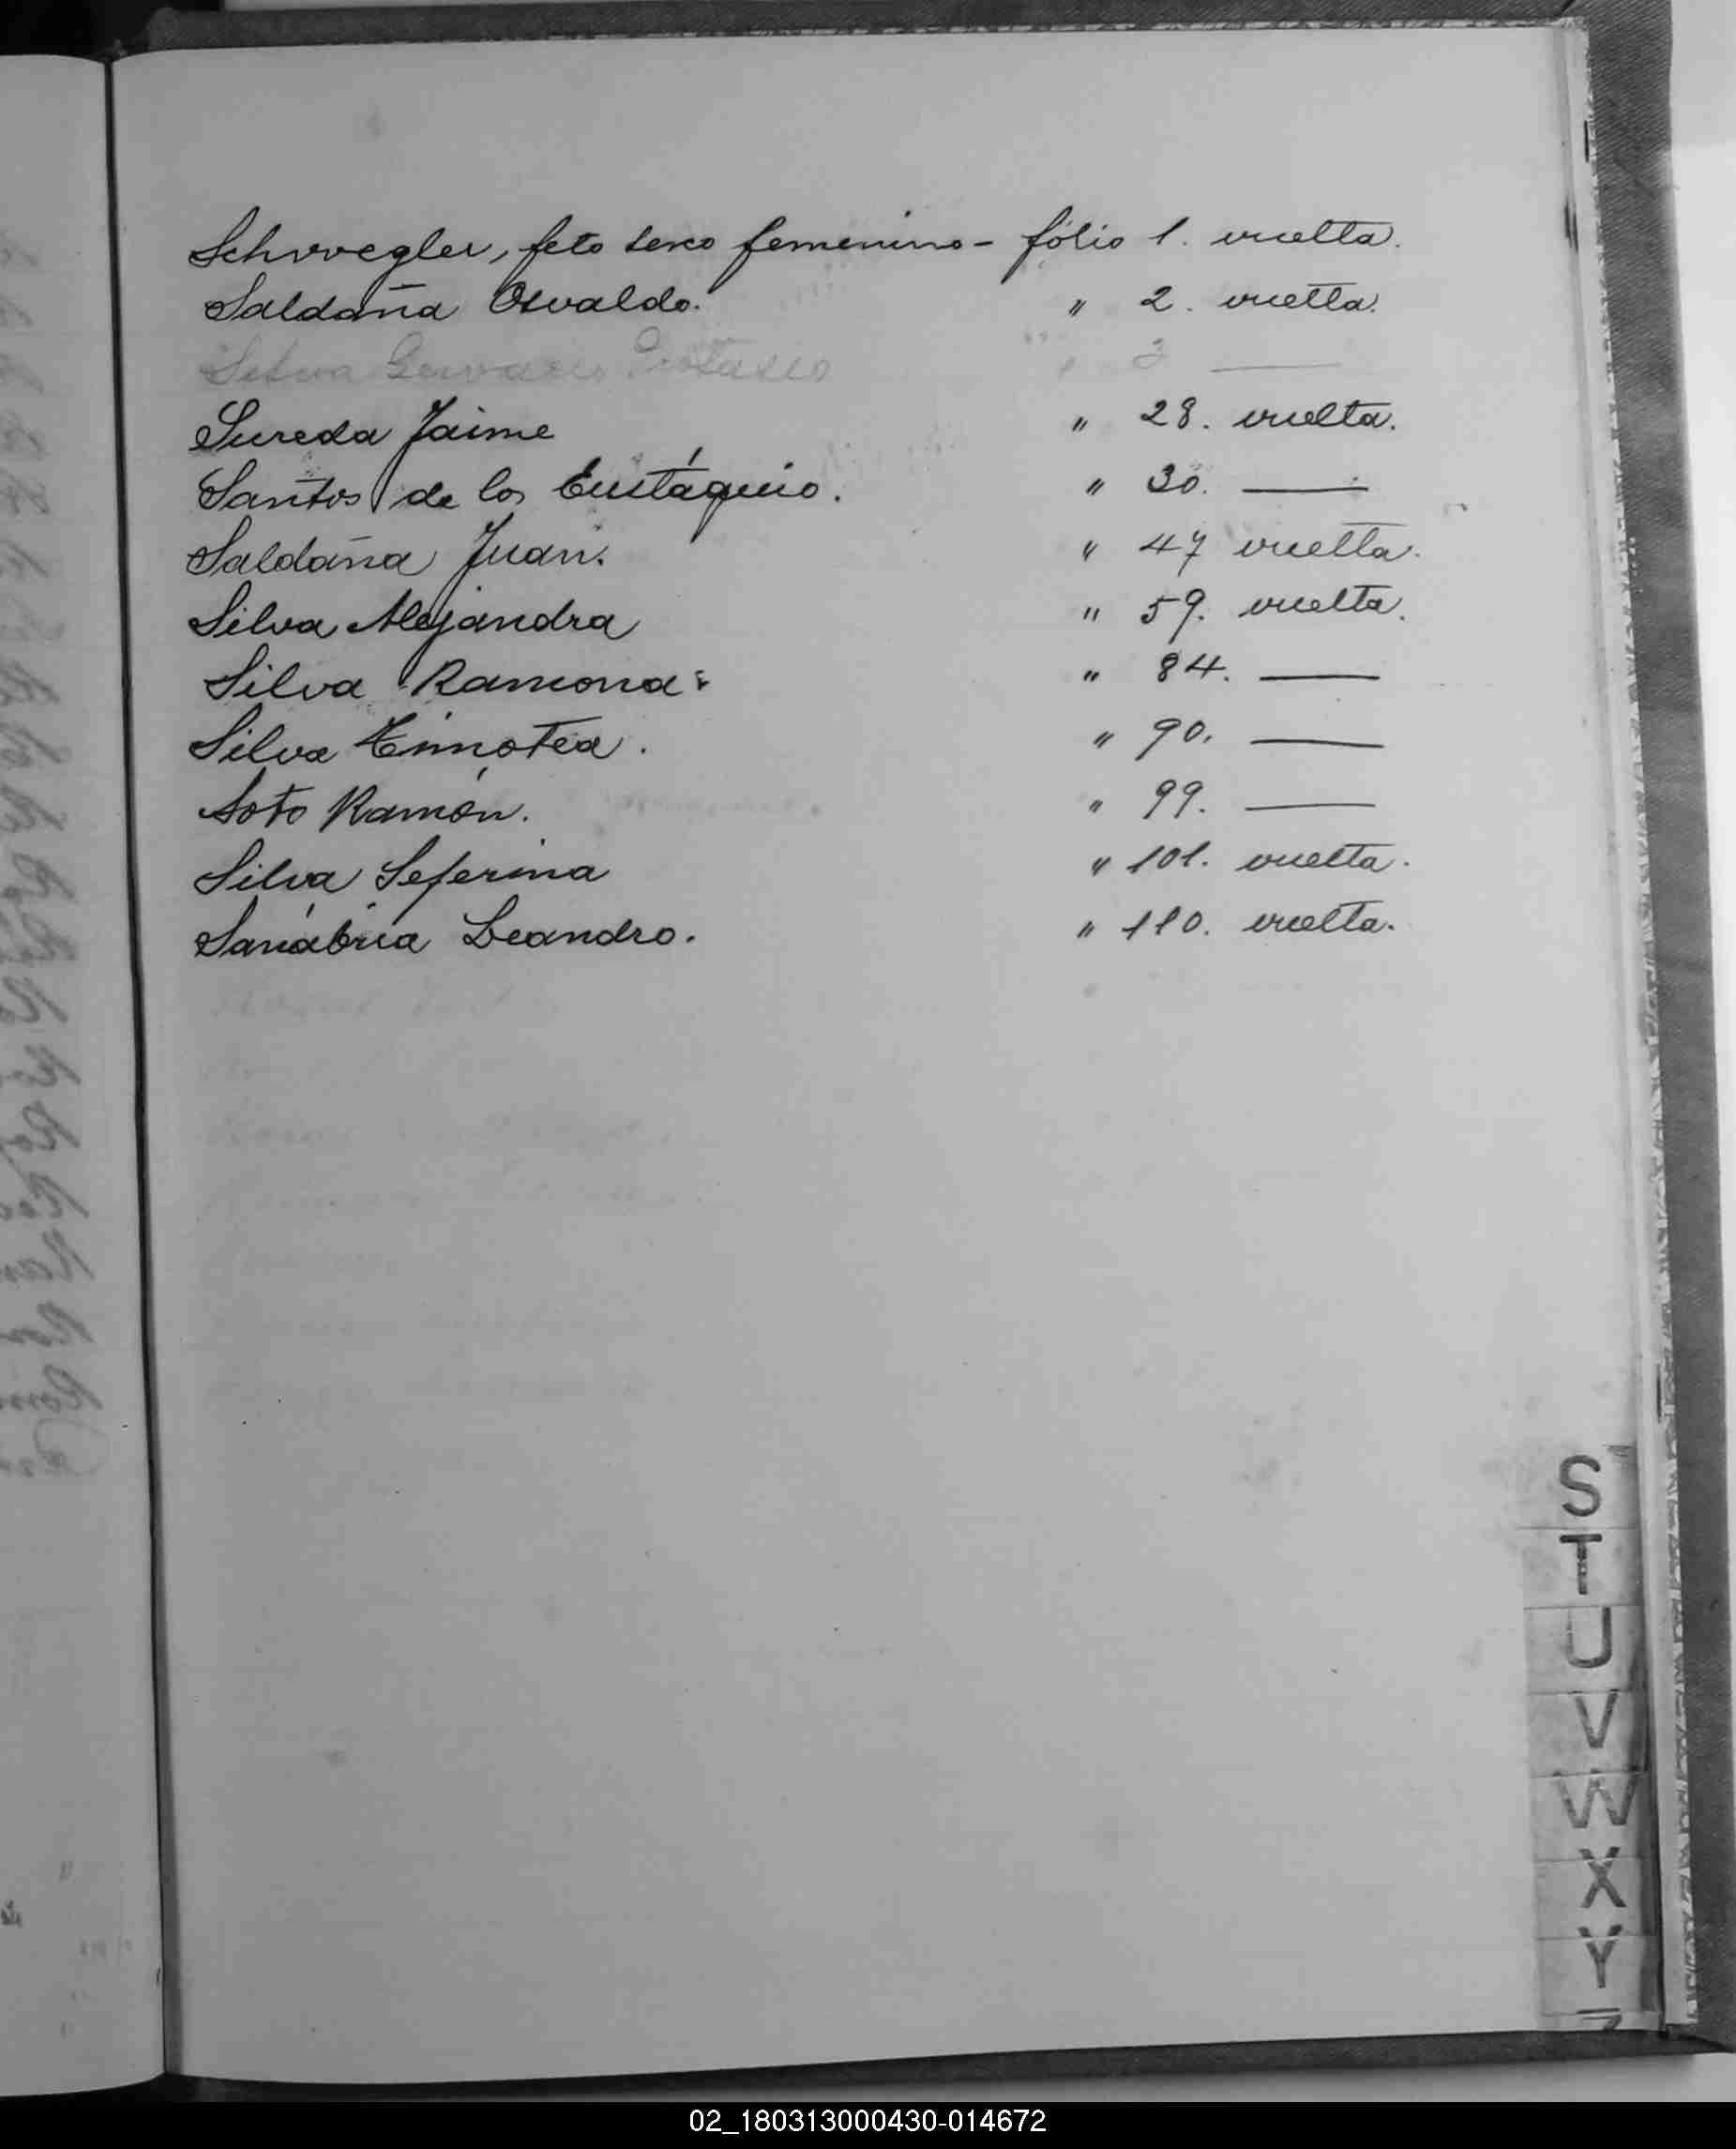 Schwegler, feto sexo femenino - fólio 1. vuelta.
Saldaña Osvaldo. " 2. vuelta.
Silva Gervacio Protasio " 3 —
Sureda Jaime " 28. vuelta.
Santos de los Eustáquio. " 30. —
Saldaña Juan. " 47 vuelta.
Silva Alejandra " 59. vuelta.
Silva Ramona. " 84. —
Silva Timotea. " 90. —
Soto Ramón. " 99. —
Silva Seferina " 101. vuelta.
Sanábria Leandro. " 110. vuelta.
S
T
U
V
W
X
Y
Z
02_180313000430-014672